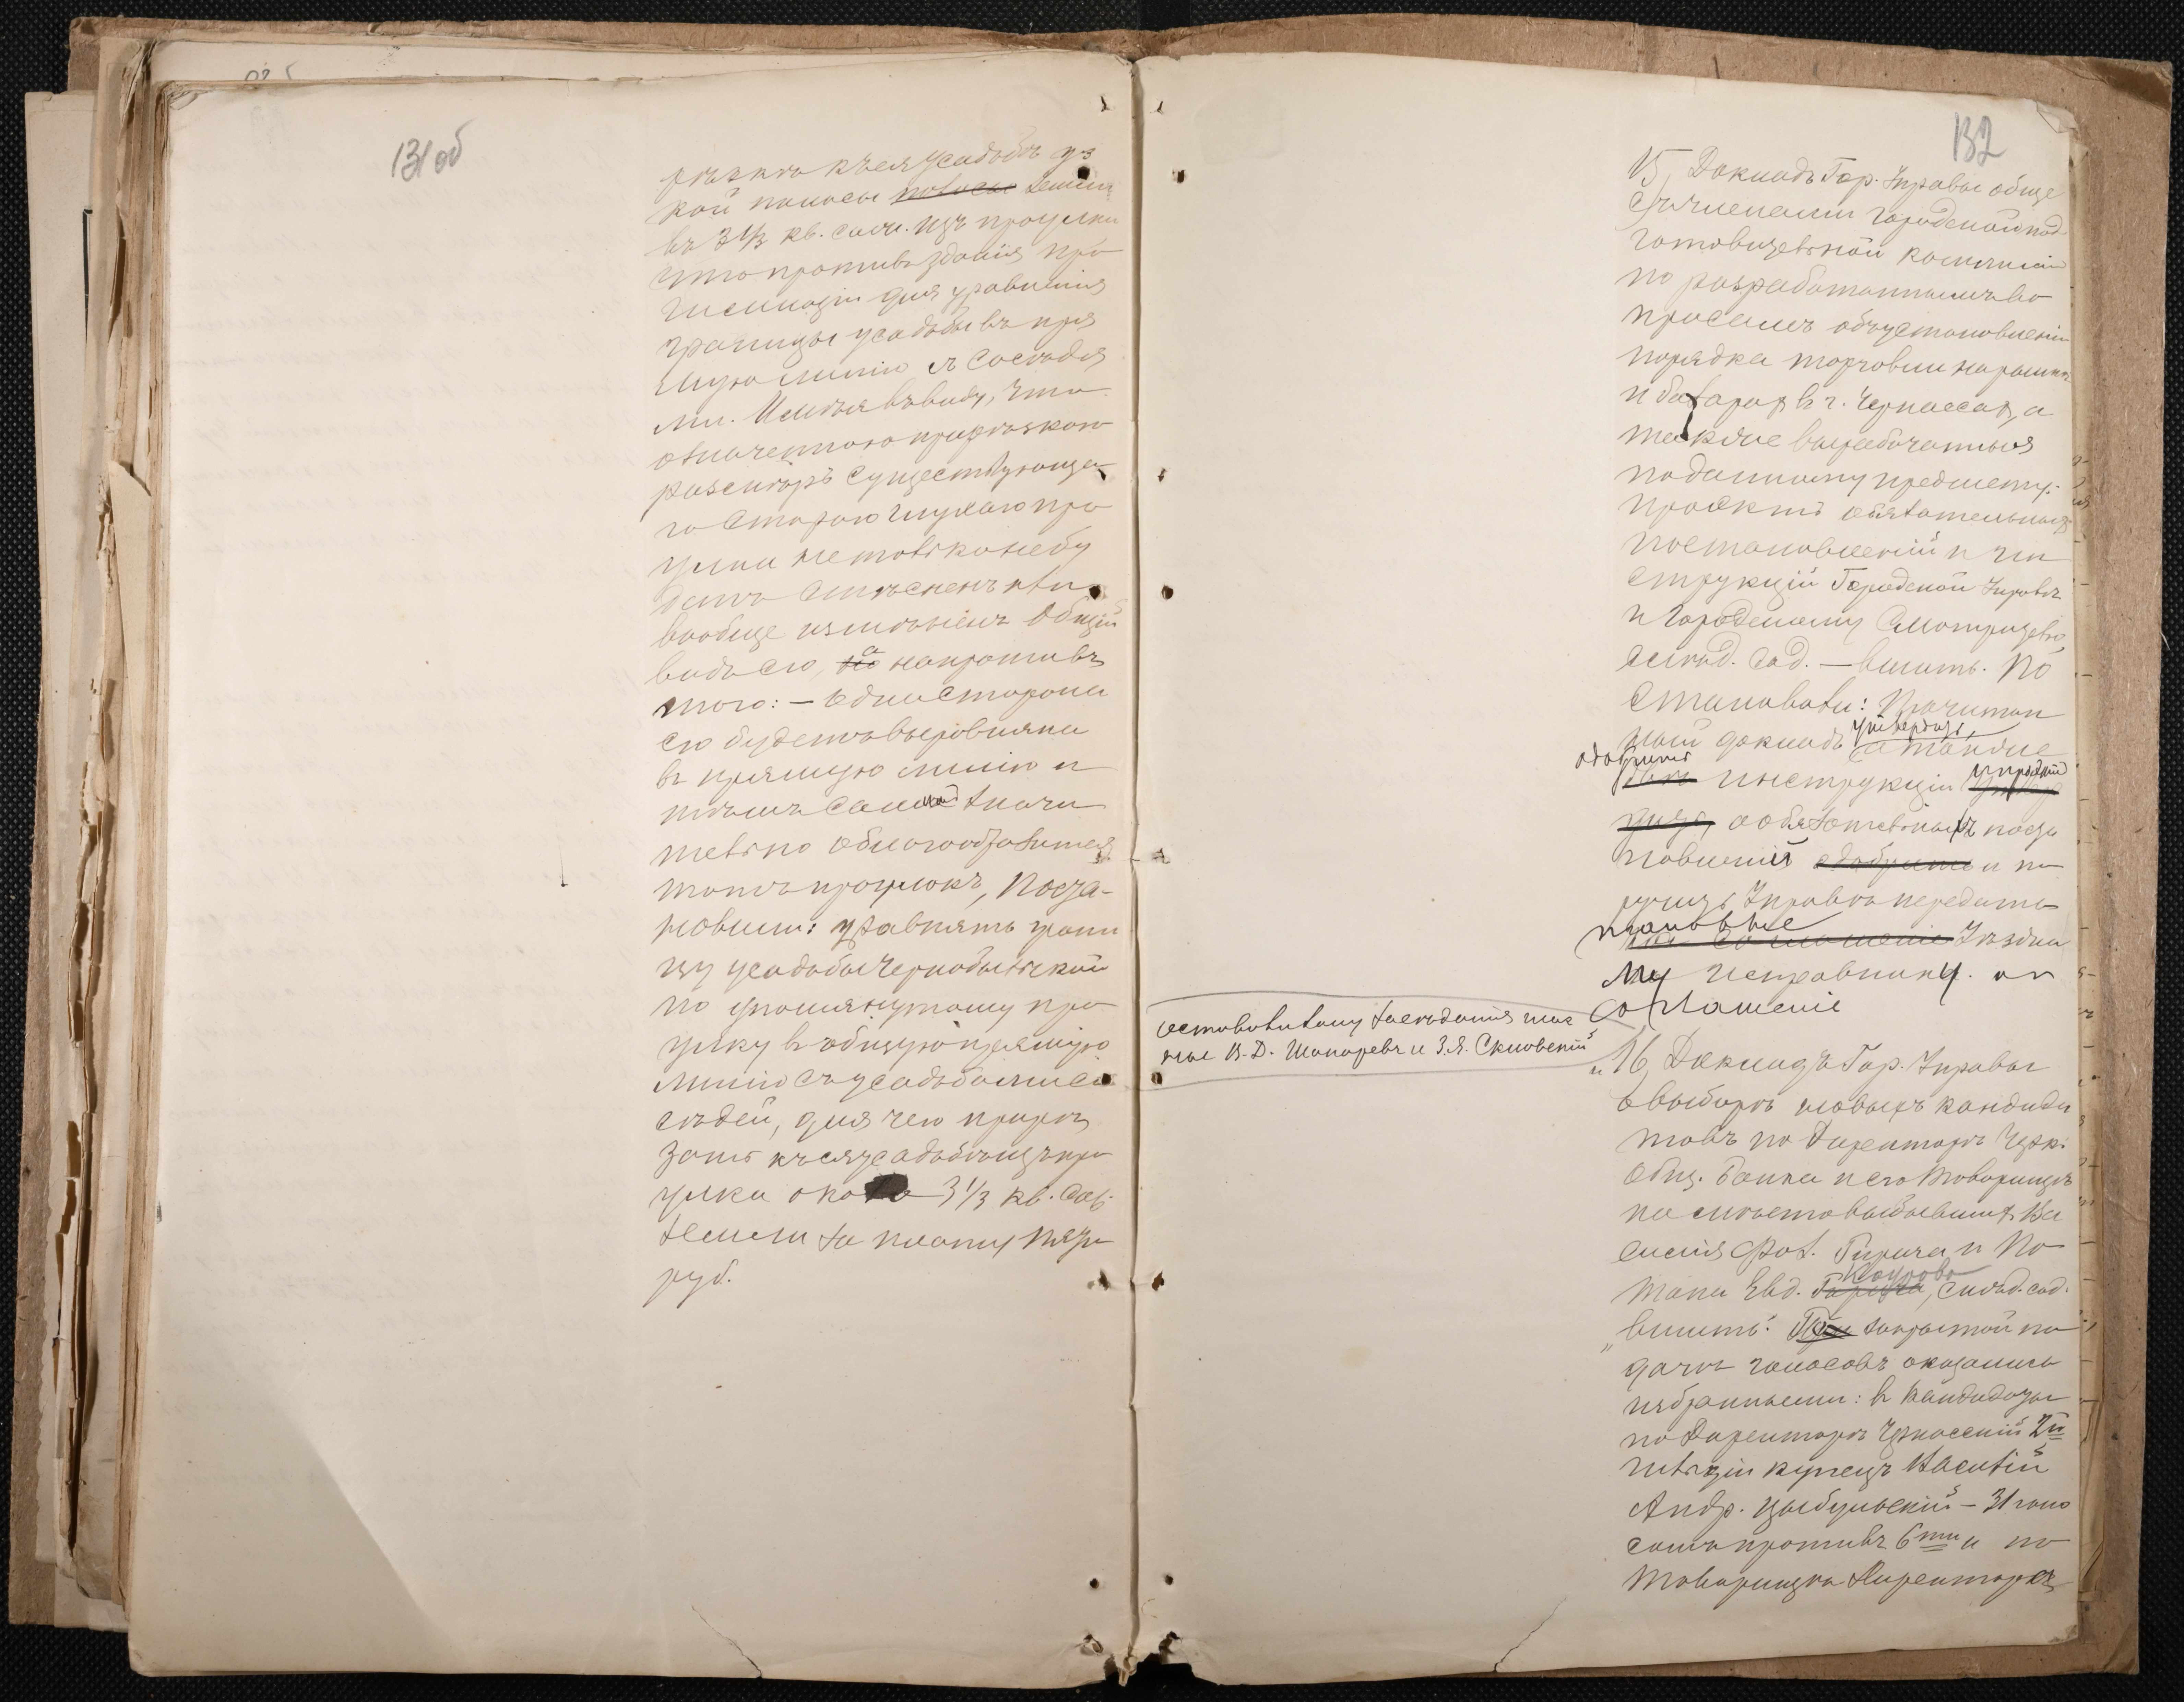 131 об
рѣзкѣ къ ея усадьбѣ уз
кой полосы полосы земли
въ 3 1/3 кв. саж. изъ проулка
что противъ зданія про
гимназіи для уравненія
границы усадьбы въ пря
мую линію съ сосѣдя
ми. Имѣя въ виду, что
означенною прирѣзкою
размѣръ существующа
го старого глухого про
улка не только не бу
детъ стѣсненъ или
вообще измѣненъ общій
видъ его, но а напротивъ
того: — одна сторона
его будетъ выровнена
въ прямую линію и
тѣмъ самымъ значи
тельно облагообразится
тотъ проулокъ, поста-
новили: уравнять грани
цу усадьбы Чернобыльской
по упомянутому про
улку въ общую прямую
линію съ усадьбами со
сѣдей, для чего прирѣ
зать къ ея усадьбѣ изъ про
улка около 3 1/3 кв. саж.
земли за плату пять
руб.
132
15, Докладъ Гор. Управы обще
съ членами городской под
готовительной коммисіи
по разработаннымъ во
просамъ объ установленіи
порядка торговли на рынкѣ
и базарахъ в г. Черкассахъ, а
также выработанныя
по данному предмету:
проектъ обязательныхъ
постановленій и ин
струкцій Городской Управѣ
и городскому Смотрителю,
слѣд. сод. — вписать. По
становили: Прочитан
ный докладъ утвердить, а также
одобрить инструкціи и проектъ
объ обязательныхъ поста
новленій одобрить и по
ручить Управѣ передать
таковые
на соглашеніе Уѣздно
му исправнику. на
соглашеніе
оставили залу засѣданія глас
ные В. Д. Шапаревъ и З. Я. Скловскій
„16, Докладъ Гор. Управы
о выборѣ новыхъ кандида
товъ по Директорѣ Черк.
Общ. банка и его товарищѣ
на мѣсто выбывшихъ Ва
силія Роз. Гирича и По
тапа Евд. Гарича, слѣд. сод.
„вписать. При закрытой по
дачѣ голосовъ оказались
избранными: в кандидаты
по Директорѣ Черкасскій 2й
гильдіи купецъ Василій
Андр. Цыбульскій — 31 голо
сомъ противъ 6ти и по
товарищѣ Директора